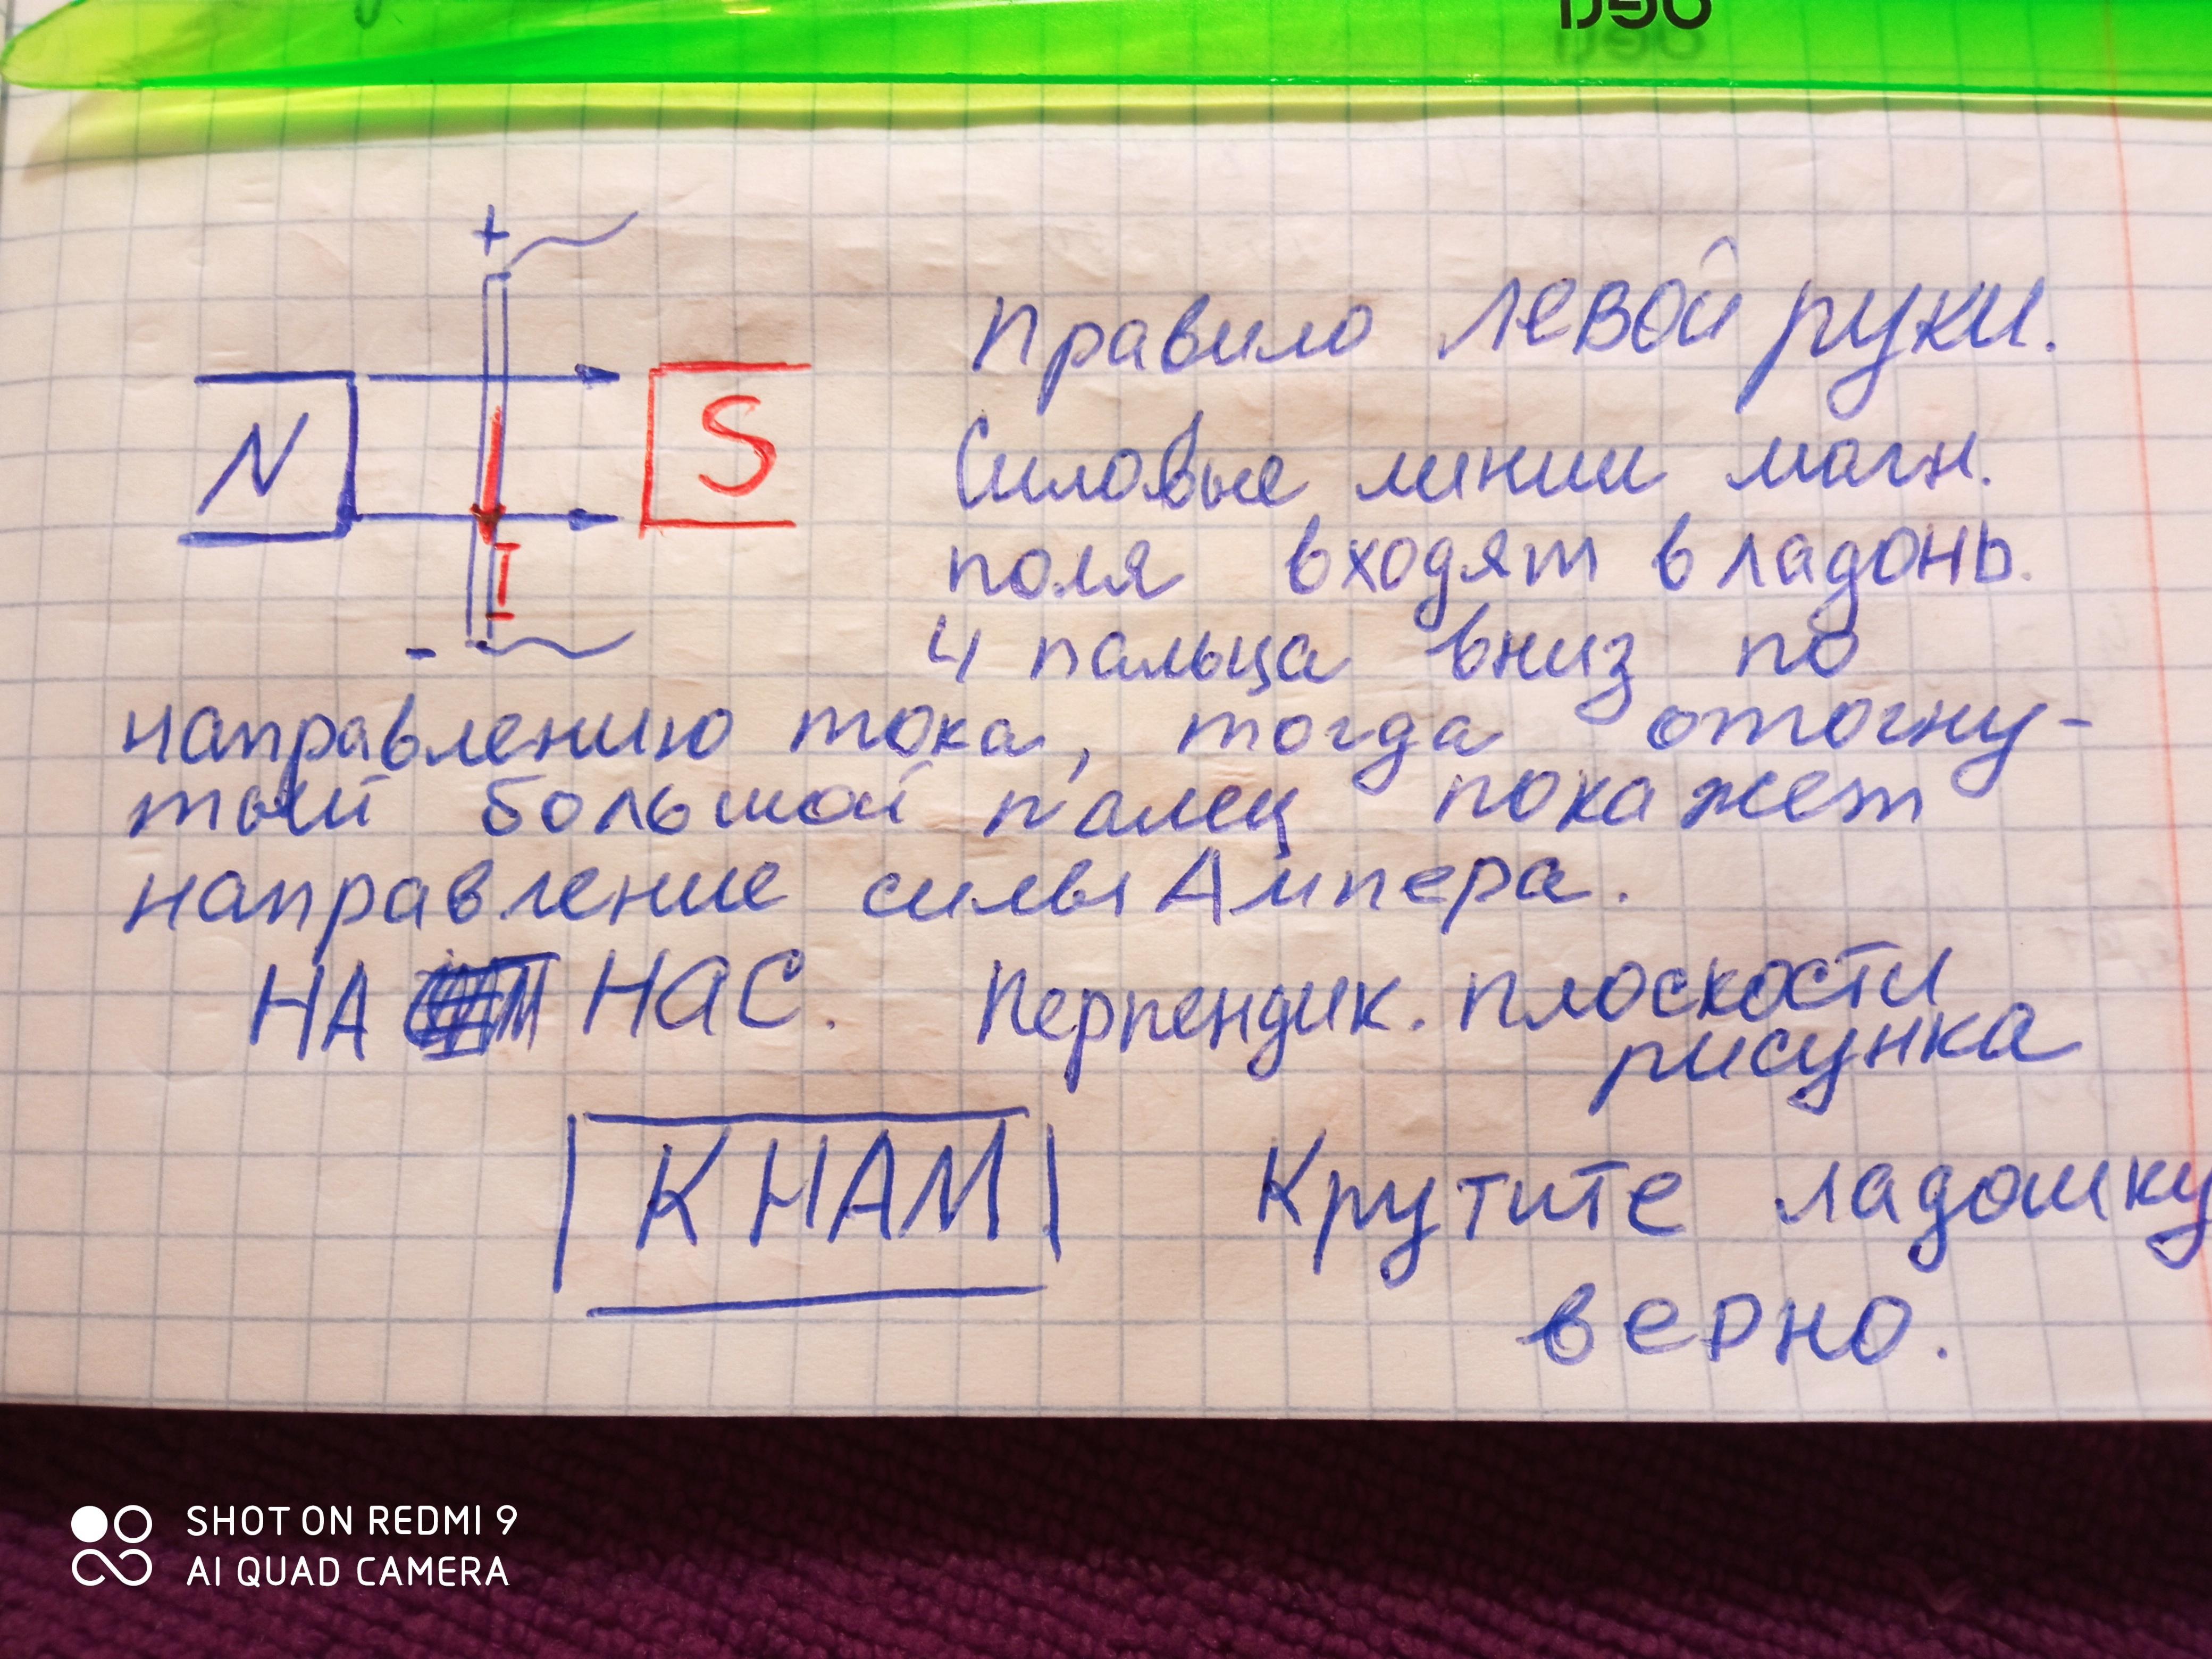 +
Правило левой руки.
N
S
Силовые линии магн.
поля входят в ладонь.
I
4 пальца вниз по
-
направлению тока, тогда отогну-
тый большой палец покажет
направление силы Ампера.
НА НАС. Перпендик. плоскости
рисунка
К НАМ
Крутите ладошку
верно.
SHOT ON REDMI 9
AI QUAD CAMERA